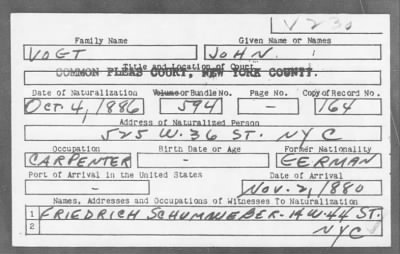 V 230
Family Name Given Name or Names
VOGT JOHN
Title and Location of Court
COMMON PLEAS COURT, NEW YORK COUNTY.
Date of Naturalization Volume or Bundle No. Page No. Copy of Record No.
OCT. 4, 1886 594 - 164
Address of Naturalized Person
525 W. 36 ST. NYC
Occupation Birth Date or Age Former Nationality
CARPENTER - GERMAN
Port of Arrival in the United States Date of Arrival
- NOV. 2, 1880
Names, Addresses and Occupations of Witnesses To Naturalization
1 FRIEDRICH - W. 44 ST.
2 NYC